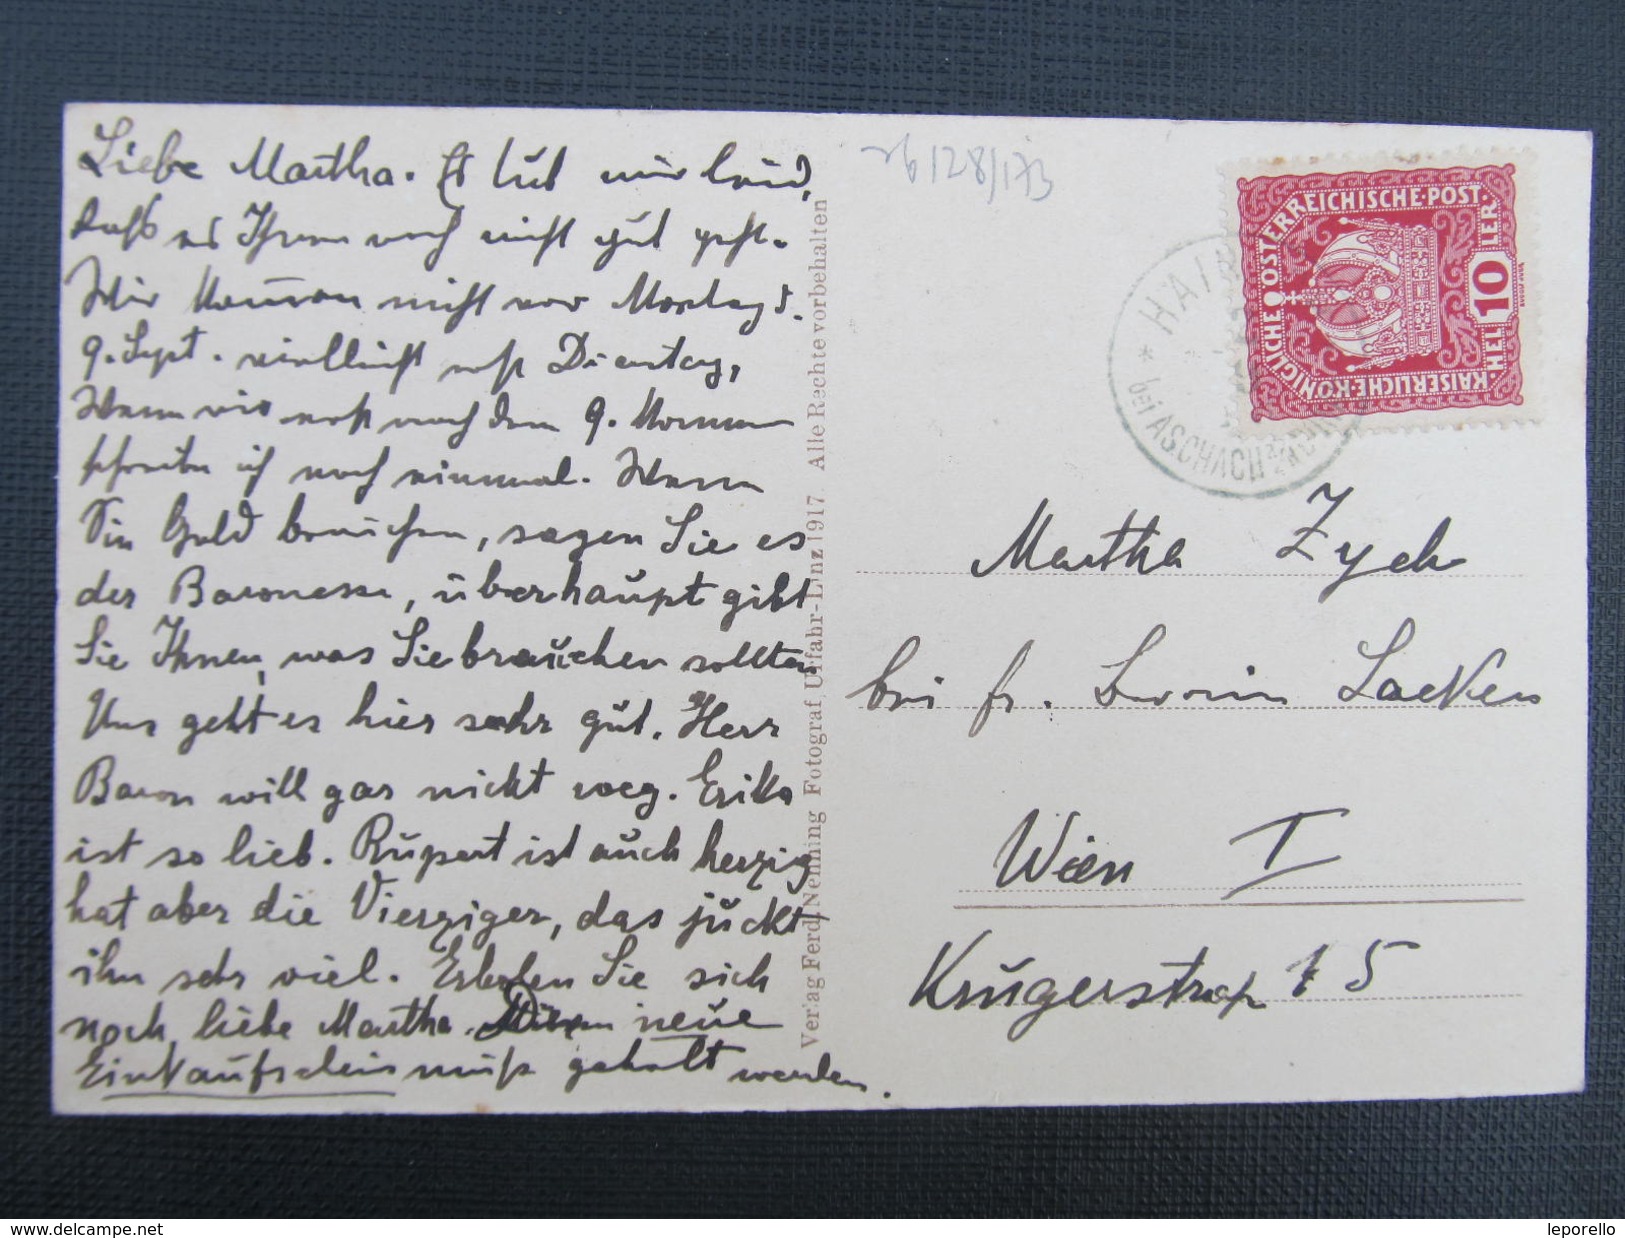 Liebe Martha. Es tut mir leid,
daß es Ihnen noch nicht gut geht.
Wir kommen nicht vor Montag d.
9. Sept. vielleicht erst Dienstag,
Wenn wir erst nach dem 9. kommen
schreibe ich noch einmal. Wenn
Sie Geld brauchen, sagen Sie es
der Baronesse, überhaupt gibt
Sie Ihnen, was Sie brauchen sollten
Uns geht es hier sehr gut. Herr
Baron will gar nicht weg. Erika
ist so lieb. Rupert ist auch herzig
hat aber die Vierziger, das juckt
ihn sehr viel. Erholen Sie sich
noch, liebe Martha. neue
Einkaufschein muß geholt werden.
Verlag Ferd. Nenning Fotograf Urfahr-Linz 1917. Alle Rechte vorbehalten
26/28/173
KAISERLICHE KÖNIGLICHE ÖSTERREICHISCHE POST
10 HELLER
* HAI
bei ASCHACH
Martha Zych
bei fr. Baronin Lacken
Wien I
Krügerstraße 5
leporello
www.delcampe.net